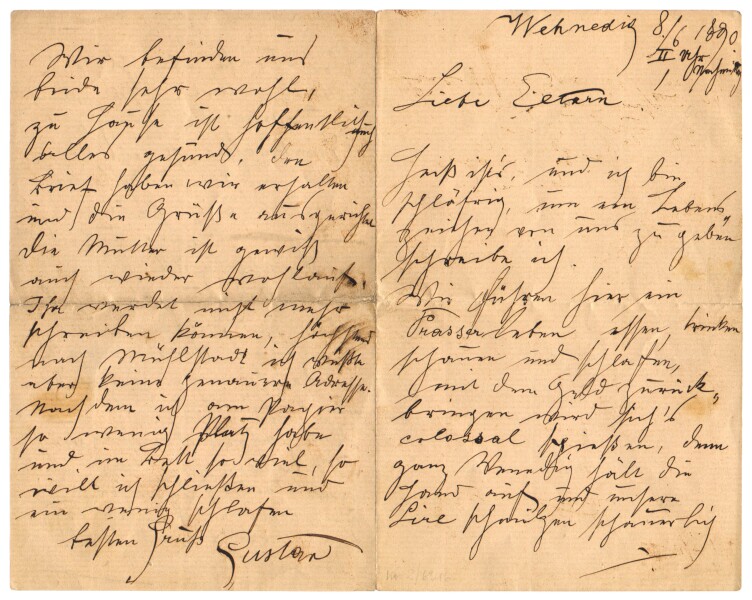 Wehnedig 8/6 1890
II Uhr
Nachmittg
Liebe Eltern
Heiß ist's, und ich bin
schläfrig, um ein Lebens
zeichen von uns zu geben
schreibe ich.
Wir führen hier ein
Prasserleben essen, trinken
schauen und schlafen,
mit dem Geld zurück-
bringen wird sich's
colossal spießen, denn
ganz Venedig hält die
Hand auf und unsere
Lire schmilzen schauerlich
Wir befinden uns
beide sehr wohl,
zu Hause ist hoffentlich auch
alles gesund. Den
Brief haben wir erhalten
und die Grüße ausgerichtet
die Mutter ist gewiß
auch wieder wohlauf.
Ihr werdet nicht mehr
schreiben können, höchstens
nach Mühlstadt ich wüßte
aber keine genauere Adresse.
Nachdem ich am Papier
so wenig Platz habe
und im Bett so viel, so
will ich schließen und
ein wenig schlafen
besten Gruß
Gustav